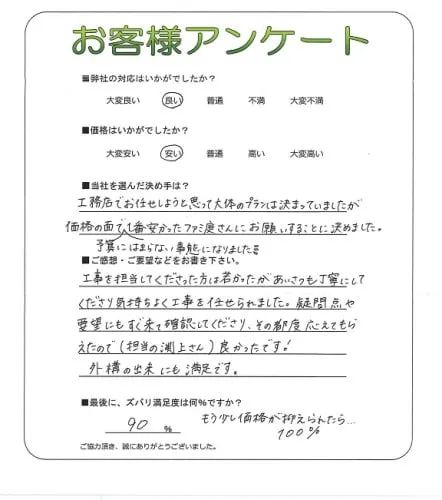 お客様アンケート
■弊社の対応はいかがでしたか?
大変良い 良い 普通 不満 大変不満
■価格はいかがでしたか?
大変安い 安い 普通 高い 大変高い
■当社を選んだ決め手は?
工務店でお任せしようと思って大体のプランは決まっていましたが
価格の面で1番安かったファミ庭さんにお願いすることに決めました。
予算にはまらない事態になりました
■ご感想・ご要望などをお書き下さい。
工事を担当してくださった方は若かったがあいさつも丁寧にして
くださり気持ちよく工事を任せられました。疑問点や
要望にもすぐ来て確認してくださり、その都度応えてもら
えたので(担当の渕上さん)良かったです!
外構の出来にも満足です。
■最後に、ズバリ満足度は何%ですか?
90 % もう少し価格が抑えられたら…
100%
ご協力頂き、誠にありがとうございました。